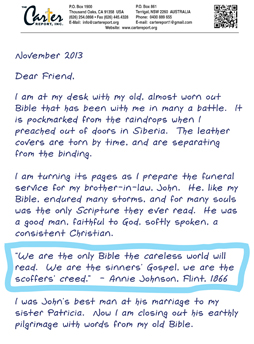 THE
Carter
REPORT, INC.
P.O. Box 1900
Thousand Oaks, CA 91358 USA
Website: www.carterreport.org
P.O. Box 861
Terrigal, NSW 2260 AUSTRALIA
November 2013
Dear Friend,
I am at my desk with my old, almost worn out
Bible that has been with me in many a battle. It
is pockmarked from the raindrops when I
preached out of doors in Siberia. The leather
covers are torn by time, and are separating
from the binding.
I am turning its pages as I prepare the funeral
service for my brother-in-law, John. He, like my
Bible, endured many storms, and for many souls
was the only Scripture they ever read. He was
a good man, faithful to God, softly spoken, a
consistent Christian.
"We are the only Bible the careless world will
read. We are the sinners' Gospel, we are the
scoffers' creed." - Annie Johnson, Flint, 1866
I was John's best man at his marriage to my
sister Patricia. Now I am closing out his earthly
pilgrimage with words from my old Bible.